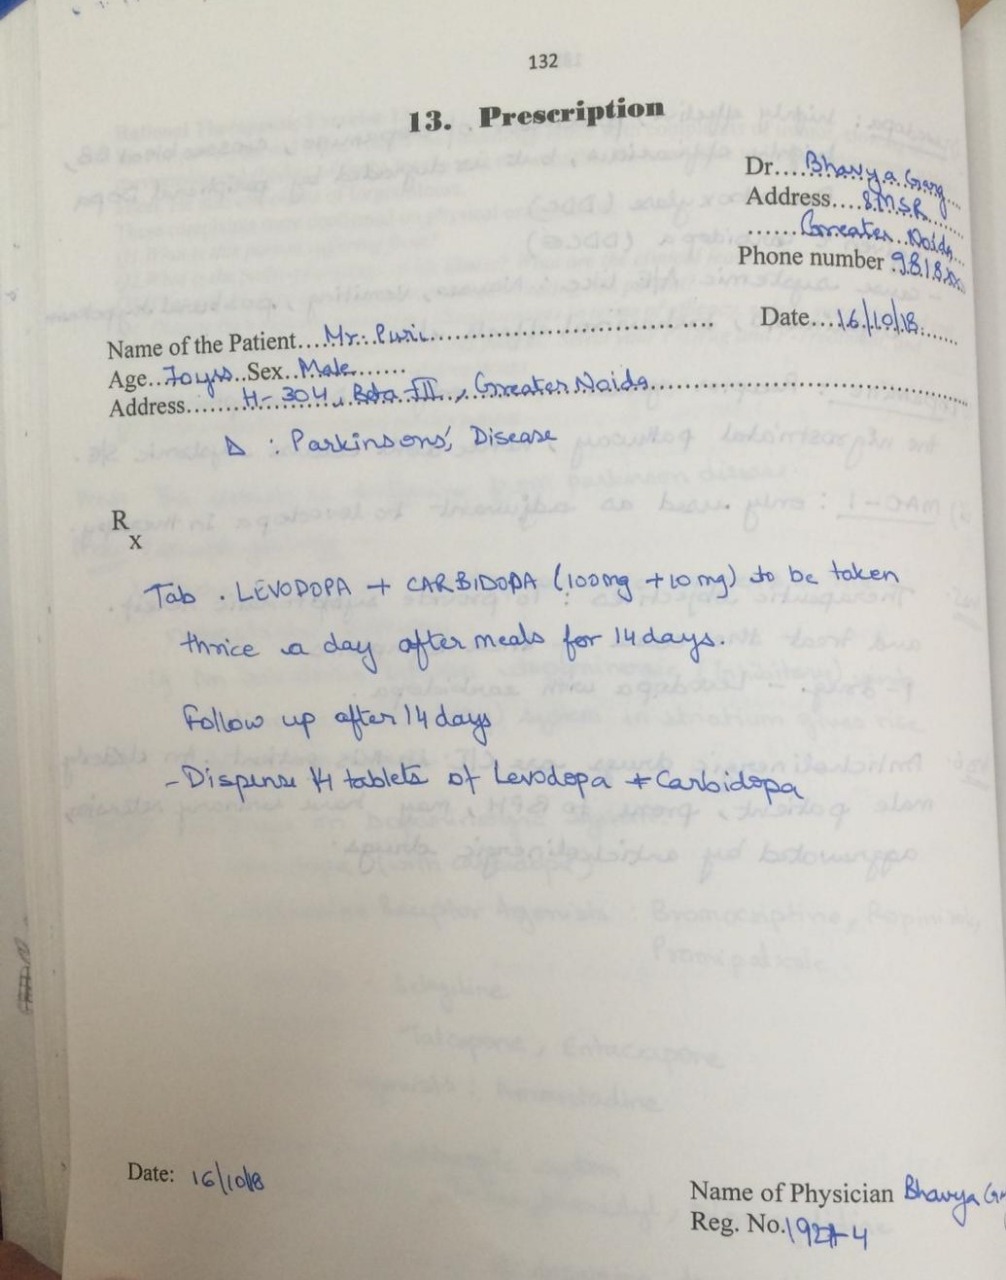 132
13. Prescription
Dr....Bhavya Garg....
Address....SMSR........
......Greater Noida...
Phone number 9818xx
Date...16/10/18......
Name of the Patient....Mr. Puri........................................ ....
Age..70yrs..Sex..Male.......
Address.......H-304, Beta III, Greater Noida..........................................
Δ : Parkinsons', Disease
R
x
Tab . LEVODOPA + CARBIDOPA (100mg + 10 mg) to be taken
thrice a day after meals for 14 days.
Follow up after 14 days
- Dispense 14 tablets of Levodopa + Carbidopa
Date: 16/10/18
Name of Physician Bhavya
Reg. No.